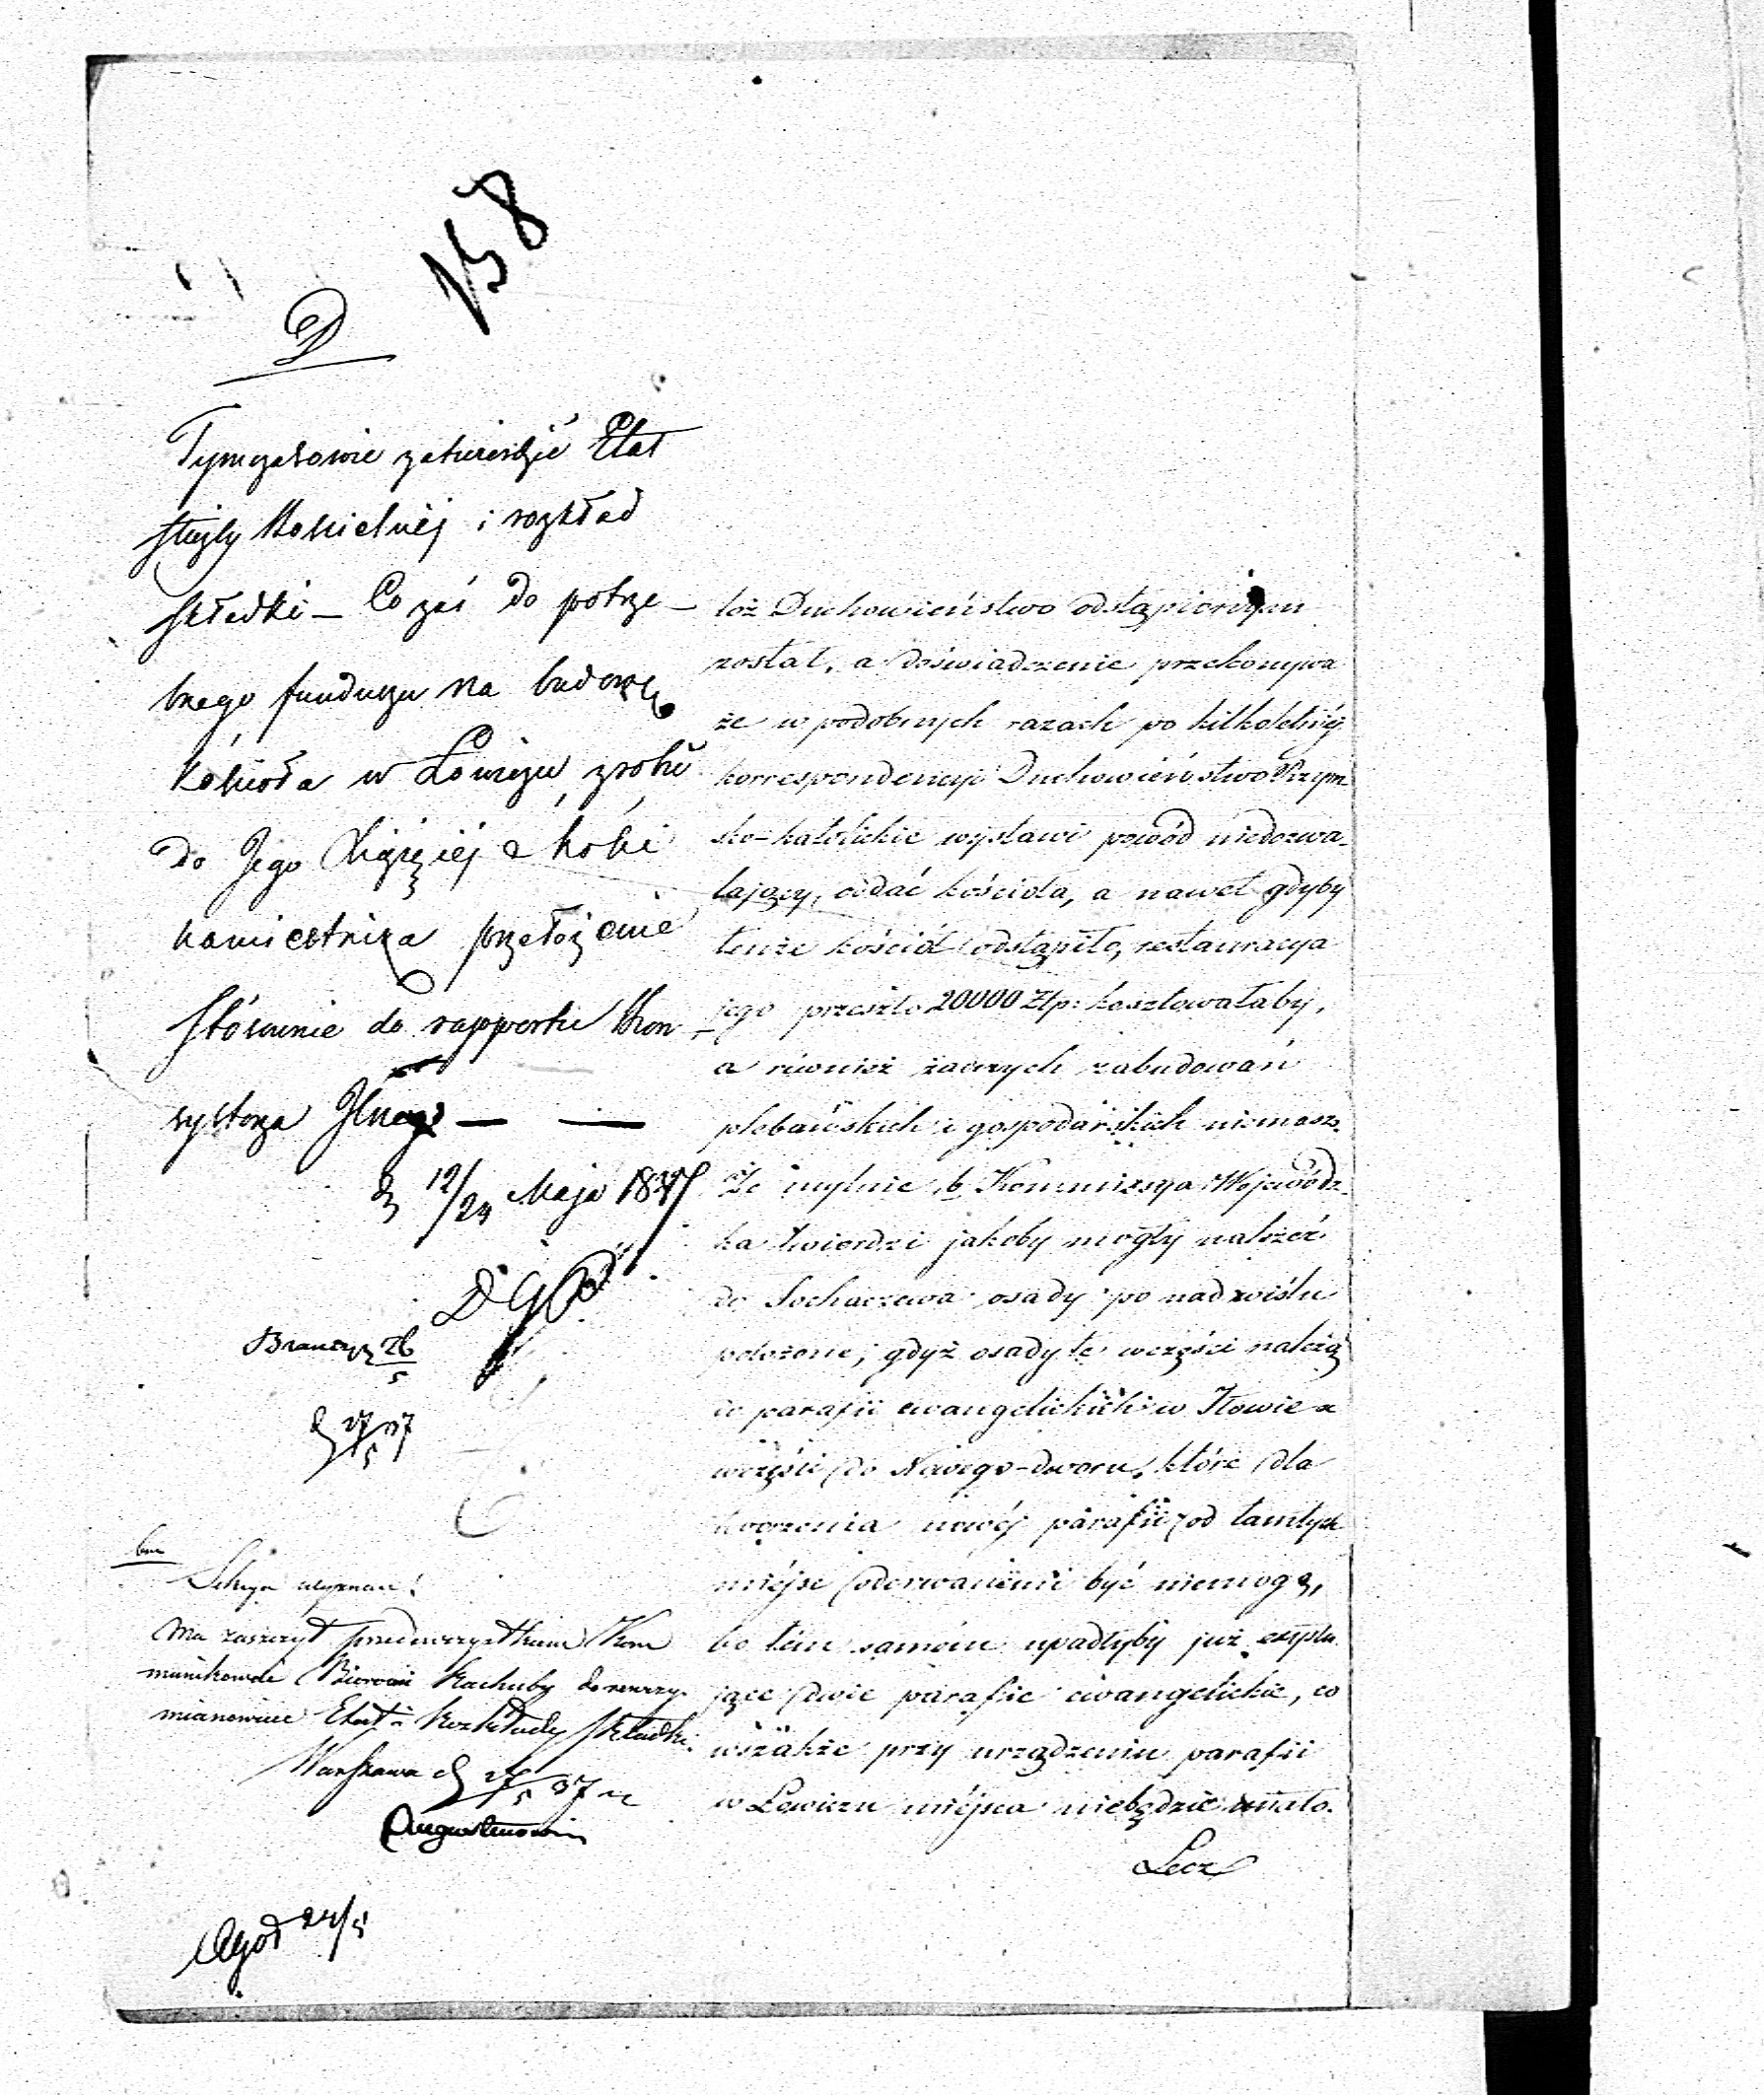 158
D
Tymczasowie zatwierdzić Etat
służby Kościelnéj i rozkład
składki – Co zaś do potrze-
bnego funduszu na budowę
kościoła w Łowiczu zrobić
do Jego Xiążęcéj Mości
Namiestnika przełożenie
stósownie do rapportu Kon-
systorza Jlnego — —
d 12/24 Maja 1837
Branczyz 26/5
d 27/5 37
Sekcya wyznań
Ma zaszczyt przedewszystkiem Kom
munikować Biorowi Rachuby do rewizyi
mianowicie Etat i Rozkłady składki.
Warszawa d 27/5 37 r
Augustinowicz
24/5
toż Duchowieństwo odstąpionym
został, a doświadczenie przekonywa
że w podobnych razach po kilkoletniéj
korrespondencyi Duchowieństwo Rzym-
sko-katolickie wystawi powód niedozwa-
lający, oddać kościoła, a nawet gdyby
tenże kościół odstąpiło, restauracya
jego przeszło 20000 Złp: kosztowałaby,
a również żadnych zabudowań
plebańskich i gospodarskich niemasz.
Że mylnie b. Kommissya Wojewódz-
ka twierdzi jakoby mogły należeć
do Sochaczewa osady po nad wisłu
położone; gdyż osady te wczęści należą
do parafii ewangelickich w Iłowie a
wczęści do Nowego-dworu, które dla
tworzenia nowéj parafii od tamtych
miéjsc oderwanemi być niemogą,
bo tém samém upadłyby już exystu-
jące dwie parafie ewangelickie, co
wszakże przy urządzeniu parafii
w Łowiczu miéjsca niebędzie miało.
Lecz